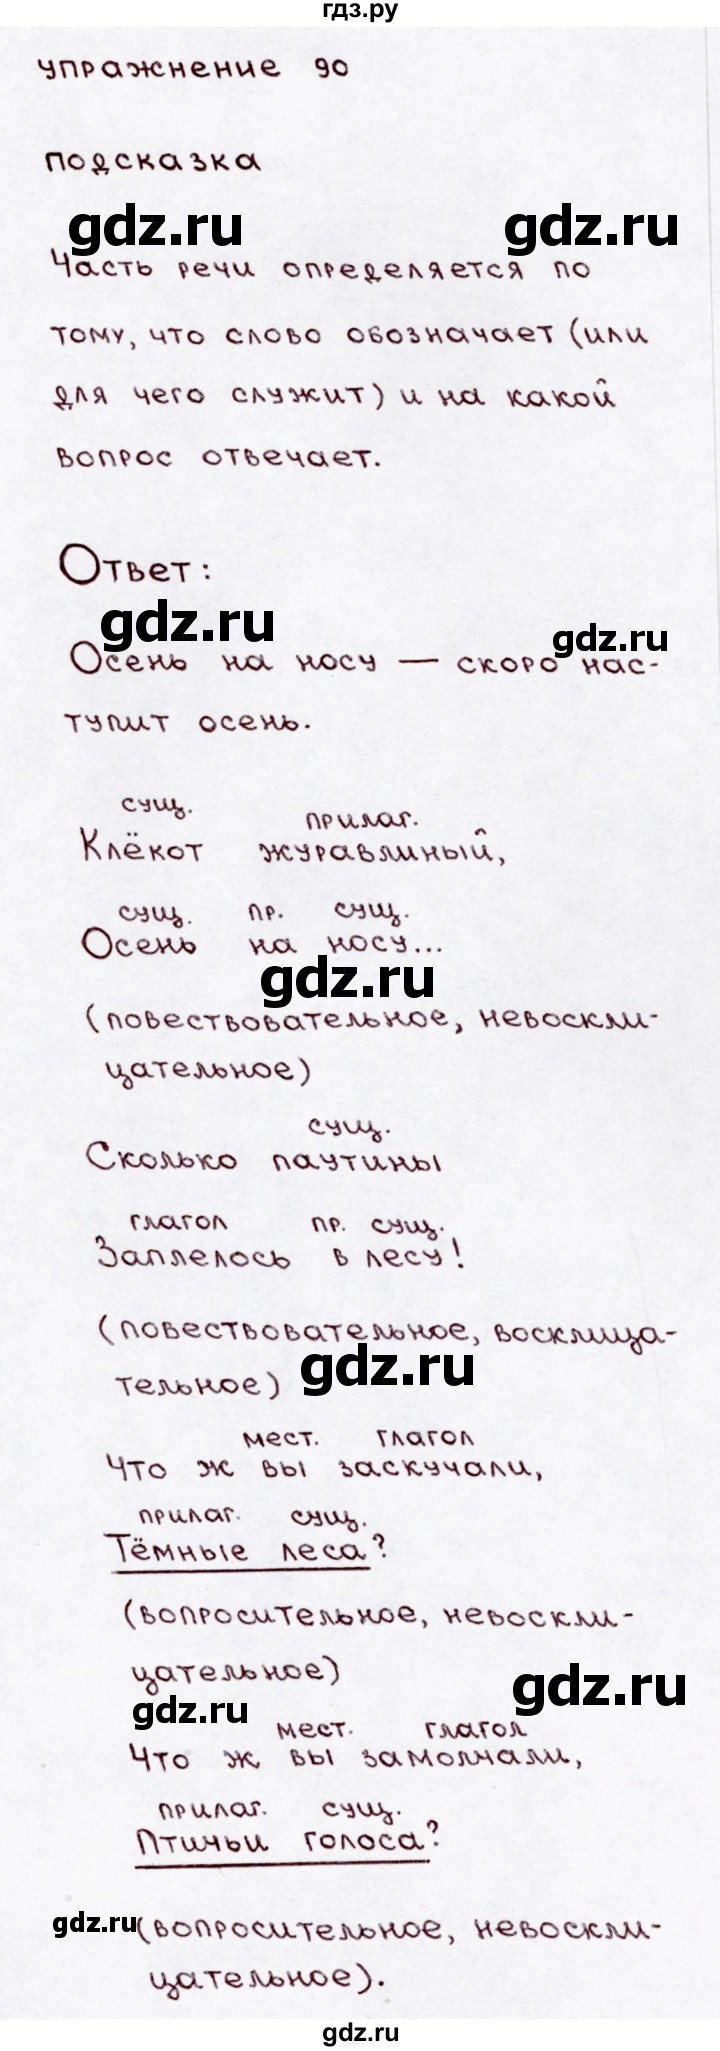 гдз.ру
упражнение 90
подсказка
gdz.ru gdz.ru
Часть речи определяется по
тому, что слово обозначает (или
для чего служит) и на какой
вопрос отвечает.
Ответ:
gdz.ru gdz.ru
Осень на носу — скоро нас-
тупит осень.
сущ. прилаг.
Клёкот журавлиный,
сущ. пр. сущ.
Осень на носу...
gdz.ru
(повествовательное, невоскли-
цательное)
сущ.
Сколько паутины
глагол пр. сущ.
Заплелось в лесу!
(повествовательное, восклица-
gdz.ru
тельное)
мест. глагол
Что ж вы заскучали,
прилаг. сущ.
Тёмные леса?
(вопросительное, невоскли-
цательное)
gdz.ru gdz.ru
мест. глагол
Что ж вы замолчали,
прилаг. сущ.
Птичьи голоса?
gdz.ru
(вопросительное, невоскли-
цательное).
gdz.ru